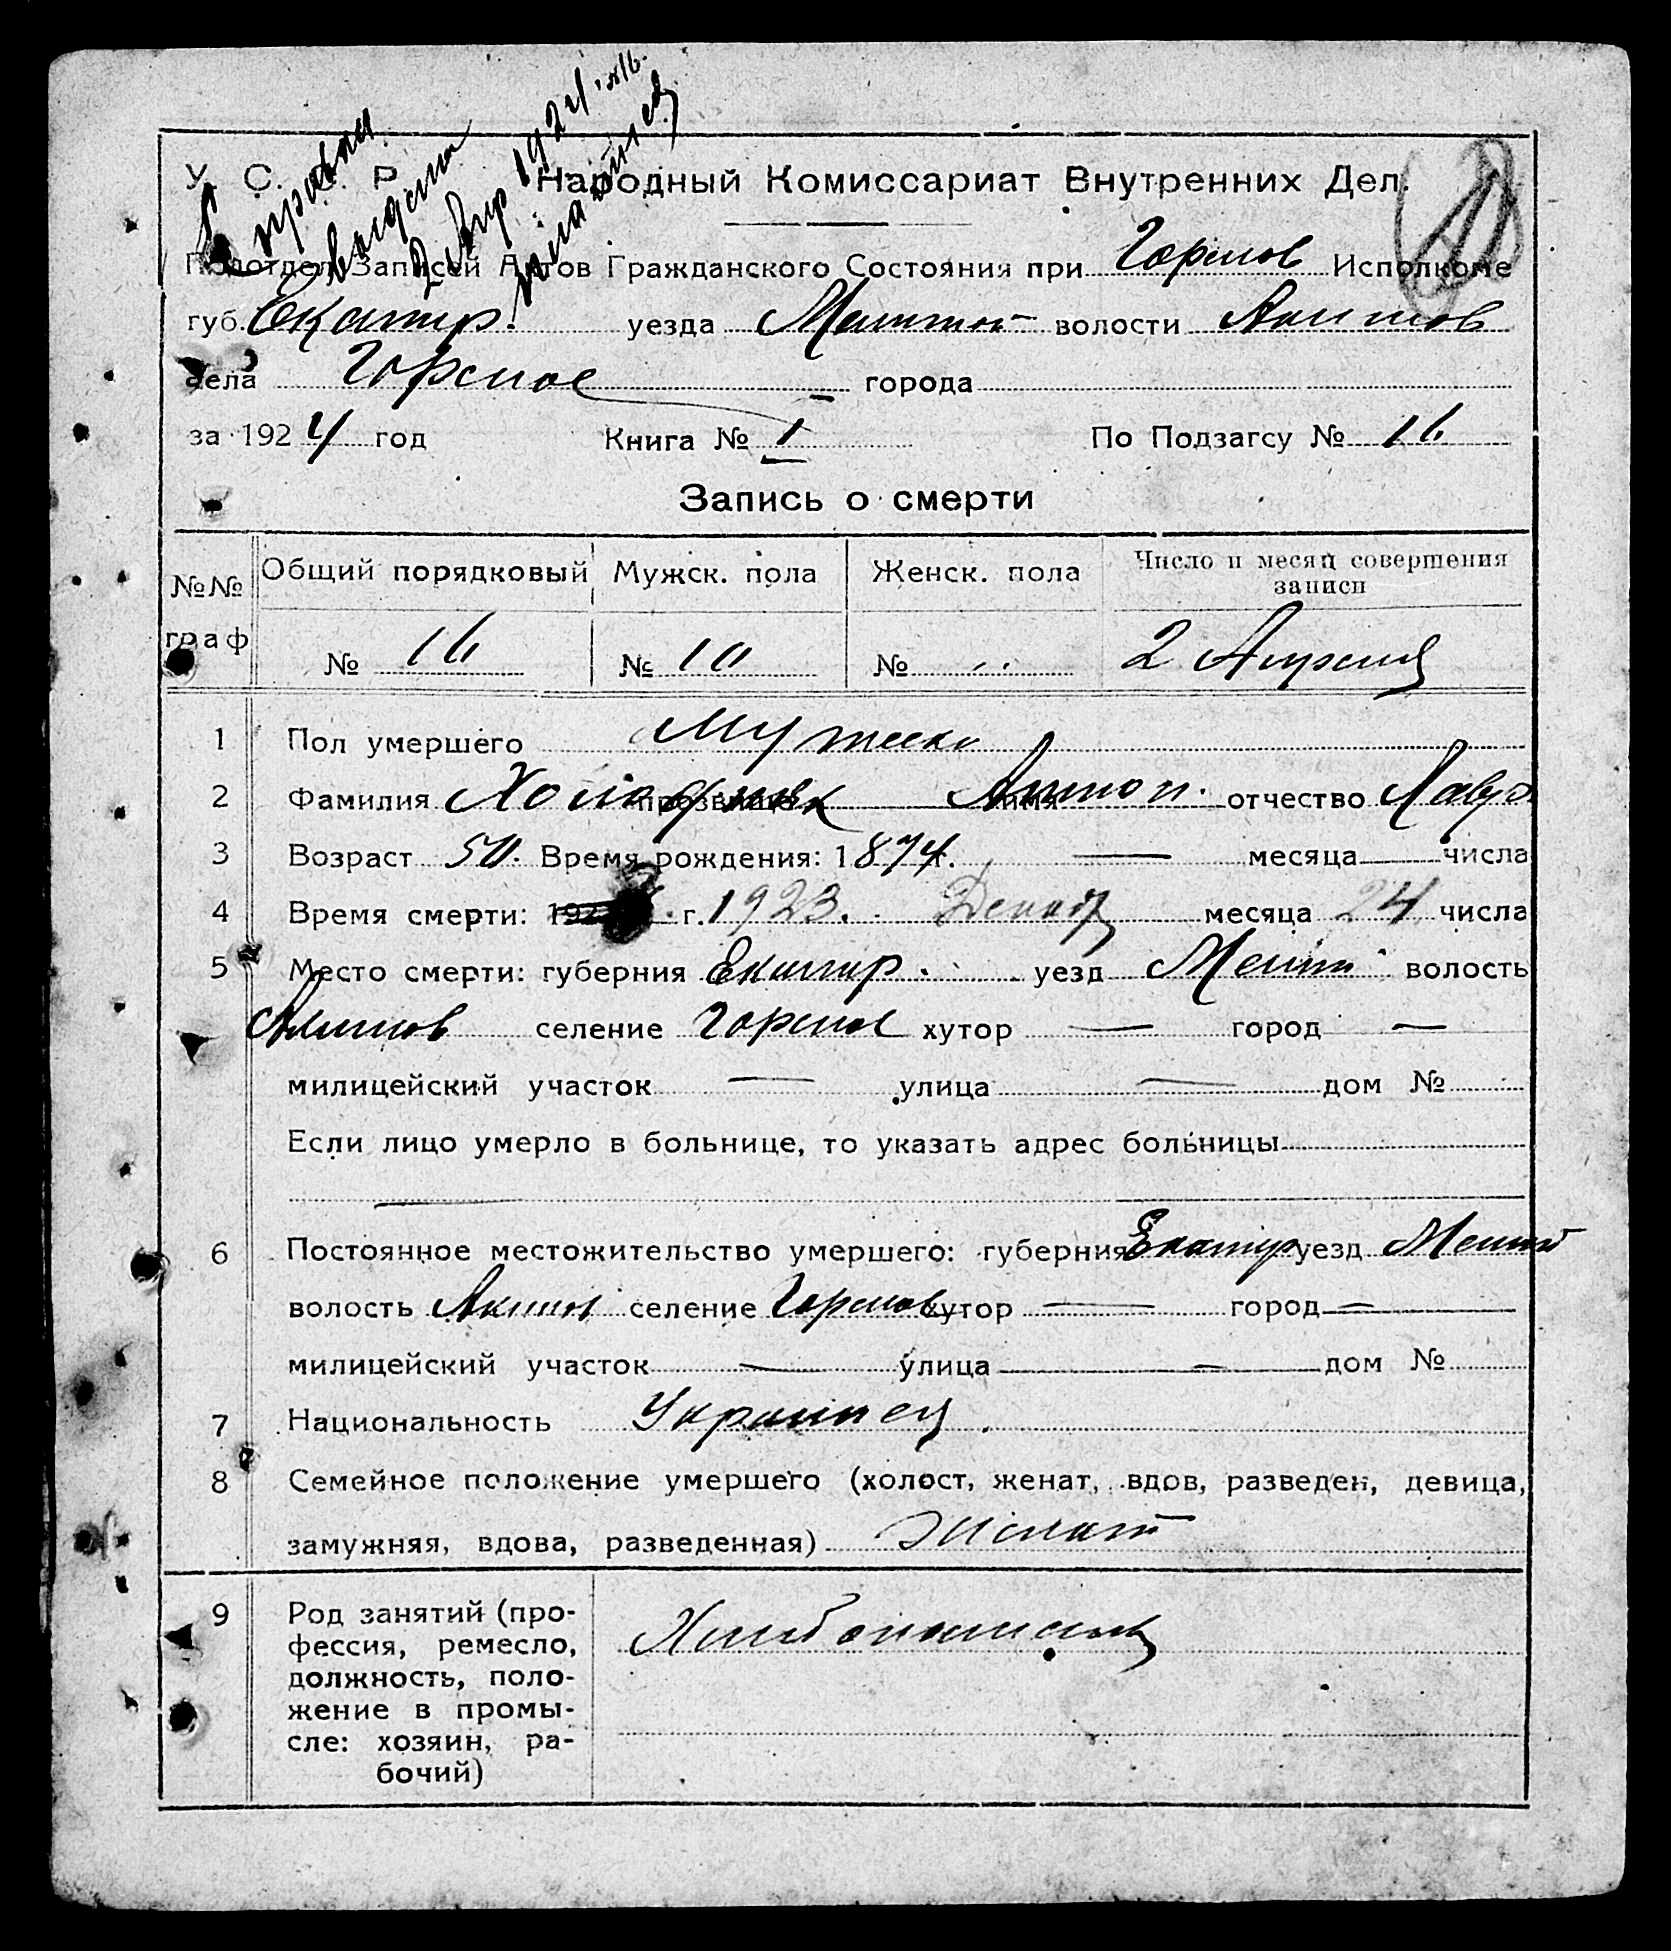 У. С. С. Р. Народный Комиссариат Внутренних Дел.
Справка
выдана
2 Апр 1924 №16.
Подотдел Записей Актов Гражданского Состояния при Горсков Исполкоме
губ. Екатер. уезда Мелит волости Акимов
села Горское города
за 1924 год Книга № 1 По Подзагсу № 16
Запись о смерти
№№ граф Общий порядковый Мужск. пола Женск. пола Число и месяц совершения записи
№ 16 № 10 № 2 Апреля
1 Пол умершего Мужеск
2 Фамилия прозвище имя Антон. отчество
3 Возраст 50. Время рождения: 1874 г. — месяца числа
4 Время смерти: 192 г. 1923. Декабр месяца 24 числа
5 Место смерти: губерния Екатер. уезд Мелит волость
Акимов селение Горское хутор — город —
милицейский участок — улица — дом №
Если лицо умерло в больнице, то указать адрес больницы
—
6 Постоянное местожительство умершего: губерния Екатер уезд Мелит
волость Аким селение Горское хутор — город —
милицейский участок — улица — дом №
7 Национальность Украинец.
8 Семейное положение умершего (холост, женат, вдов, разведен, девица,
замужняя, вдова, разведенная) Женат
9 Род занятий (про-
фессия, ремесло,
должность, поло-
жение в промы-
сле: хозяин, ра-
бочий)
Хлебопашец